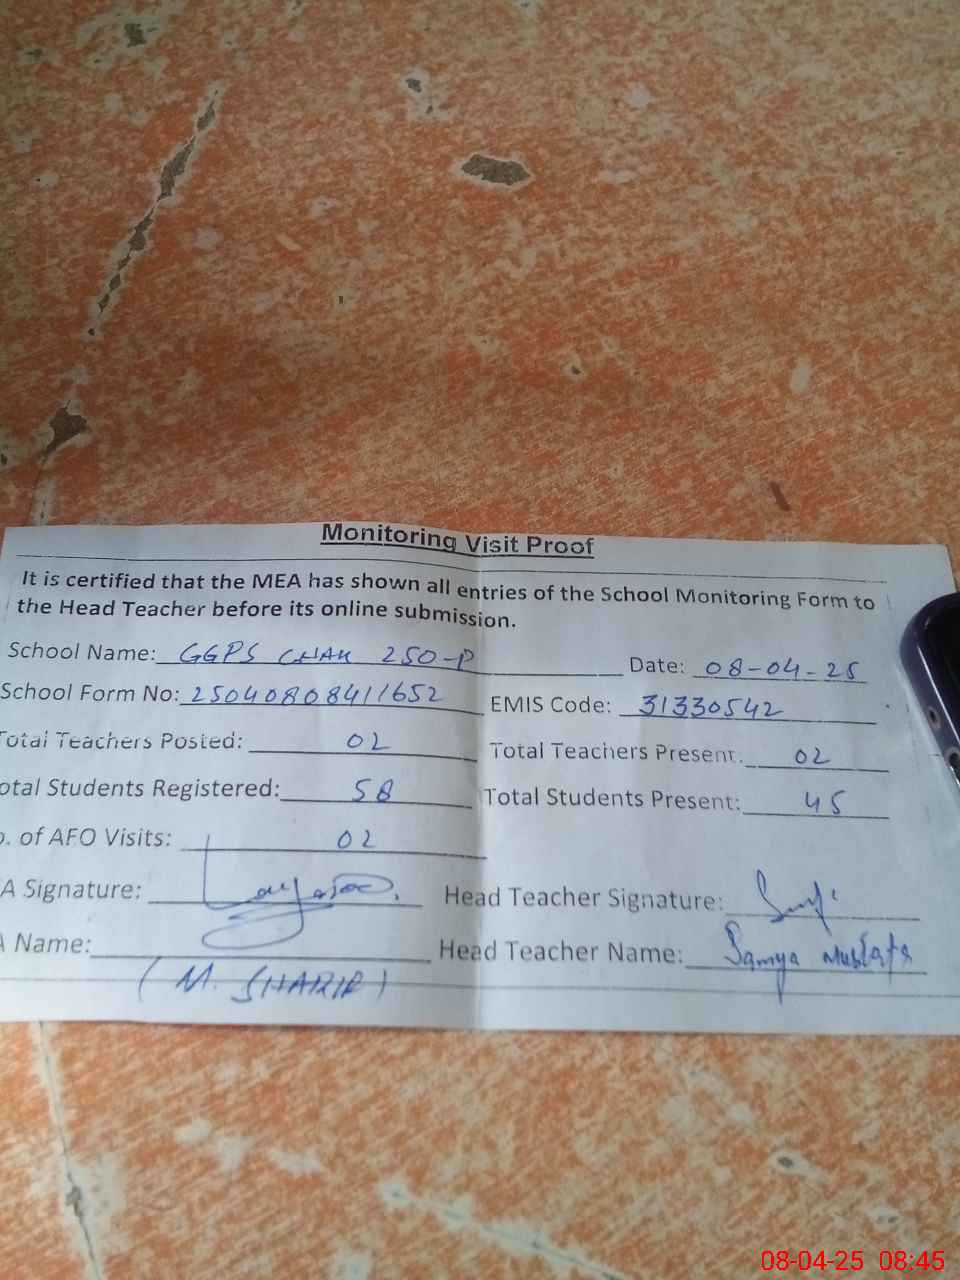 Monitoring Visit Proof
It is certified that the MEA has shown all entries of the School Monitoring Form to
the Head Teacher before its online submission.
School Name: GGPS CHAK 250-P Date: 08-04-25
School Form No: 25040808411652 EMIS Code: 31330542
Total Teachers Posted: 02 Total Teachers Present: 02
otal Students Registered: 58 Total Students Present: 45
o. of AFO Visits: 02
A Signature: Head Teacher Signature:
A Name: Head Teacher Name: Samya Mustafa
(M. SHARIR)
08-04-25 08:45